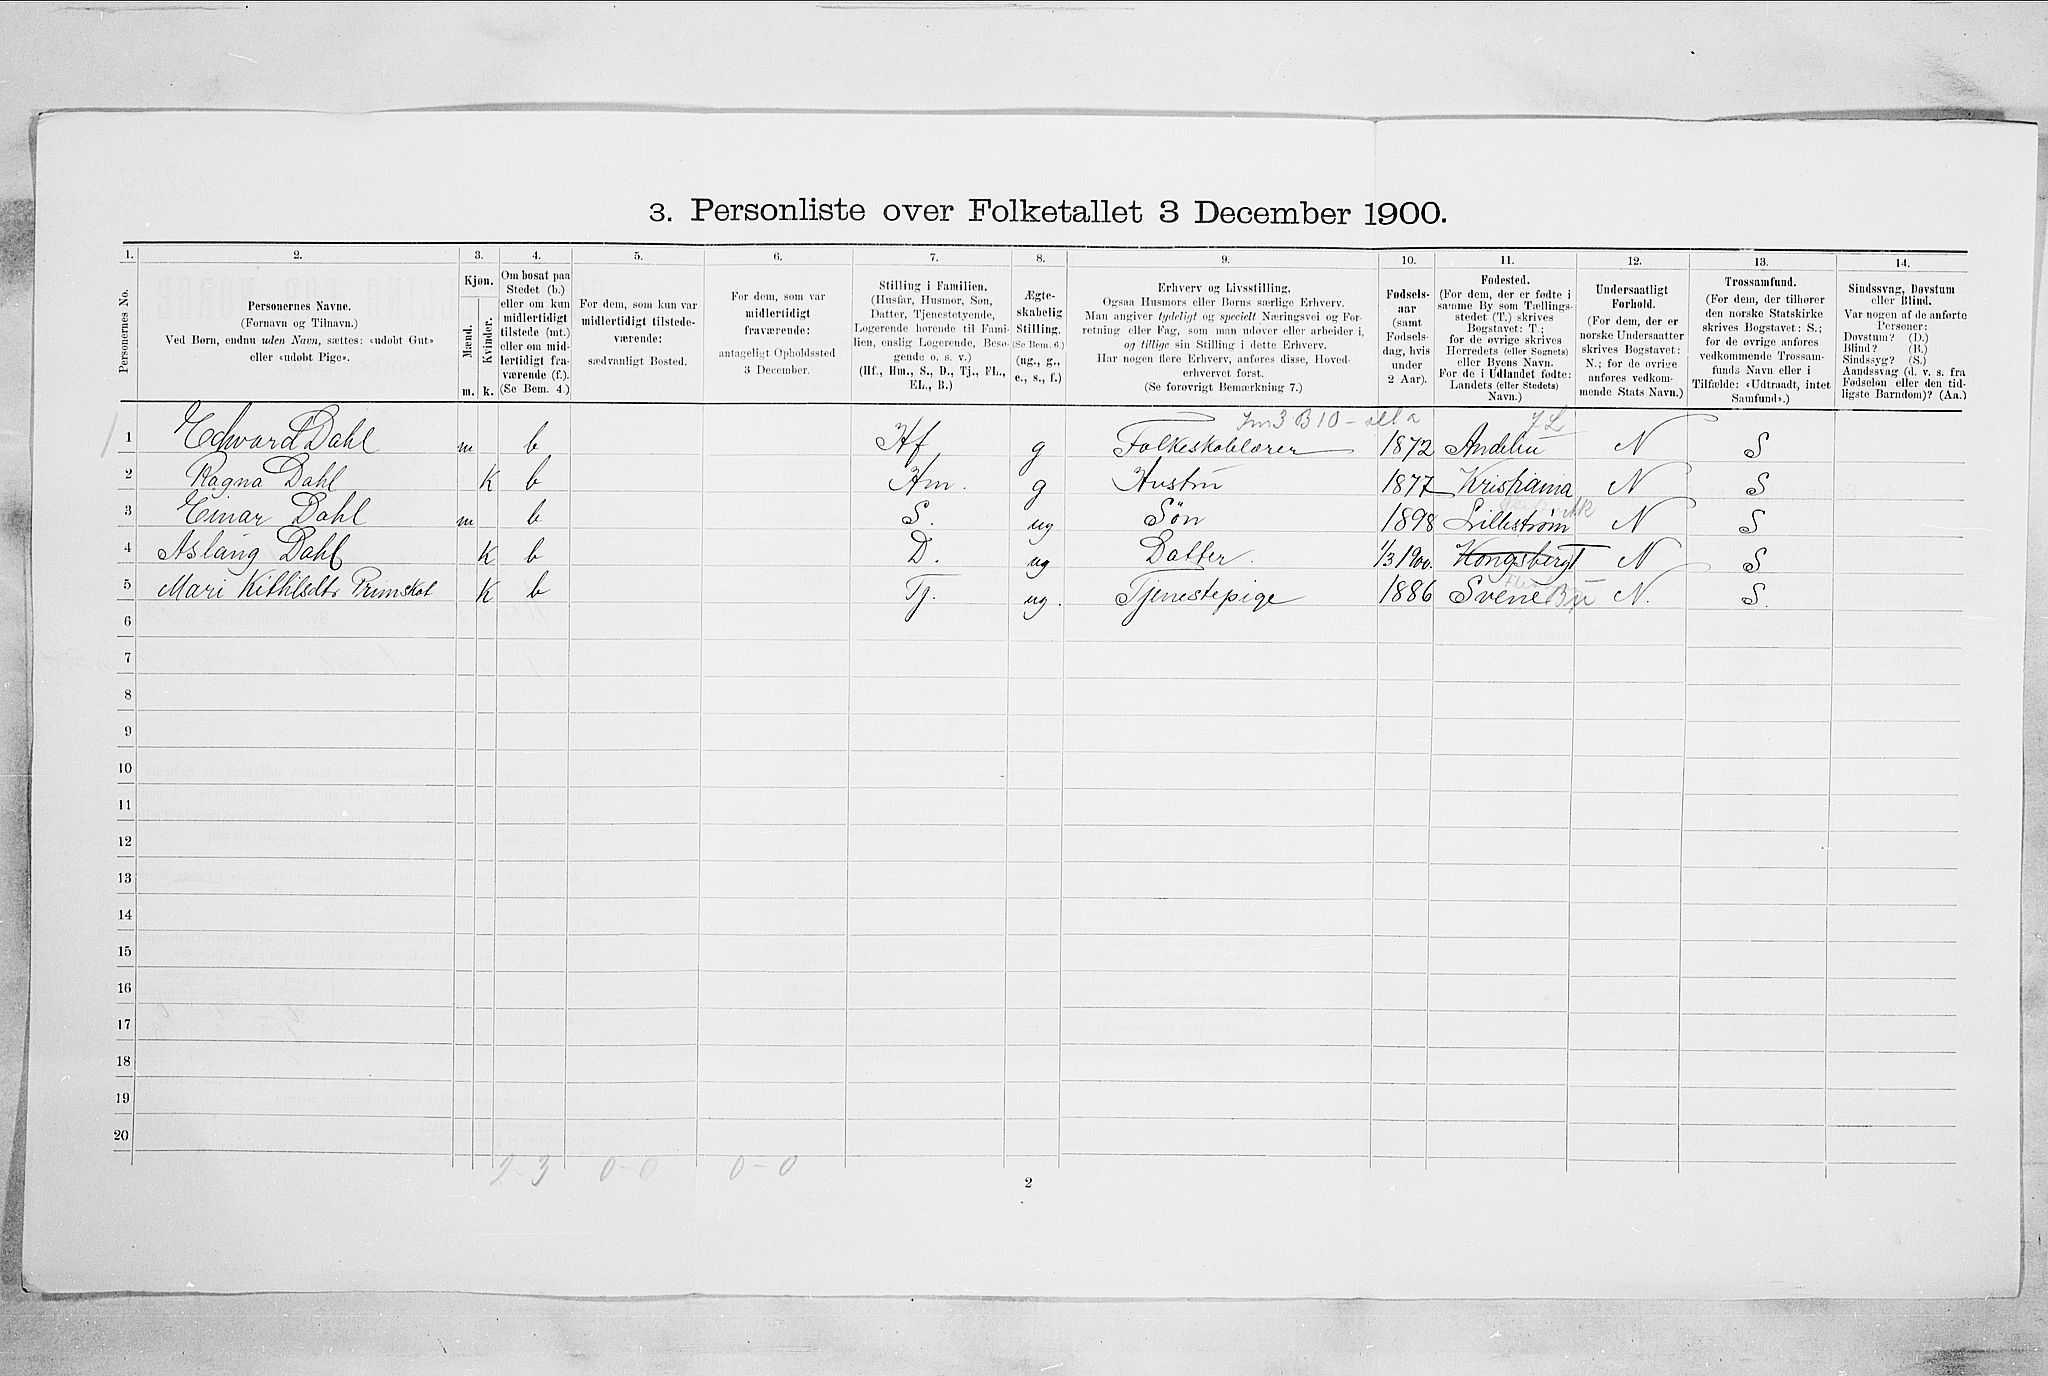 3. Personliste over Folketallet 3 December 1900.
1. 2. 3. 4. 5. 6. 7. 8. 9. 10. 11. 12. 13. 14.
Personernes No.
Personernes Navne.
(Fornavn og Tilnavn.)
Ved Børn, endnu uden Navn, sættes: «udøbt Gut»
eller «udøbt Pige».
Kjøn.
Mænd.
Kvinder.
m. k.
Om bosat paa
Stedet (b.)
eller om kun
midlertidigt
tilstede (mt.)
eller om mid-
lertidigt fra-
værende (f.).
(Se Bem. 4.)
For dem, som kun var
midlertidigt tilstede-
værende:
sædvanligt Bosted.
For dem, som var
midlertidigt
fraværende:
antageligt Opholdssted
3 December.
Stilling i Familien.
(Husfar, Husmor, Søn,
Datter, Tjenestetyende,
Logerende hørende til Fami-
lien, enslig Logerende, Besø-
gende o. s. v.)
(Hf., Hm., S., D., Tj., FL.,
EL., B.)
Ægte-
skabelig
Stilling.
(Se Bem. 6.)
(ug., g.,
e., s., f.)
Erhverv og Livsstilling.
Ogsaa Husmors eller Børns særlige Erhverv.
Man angiver tydeligt og specielt Næringsvei og For-
retning eller Fag, som man udøver eller arbeider i,
og tillige sin Stilling i dette Erhverv.
Har nogen flere Erhverv, anføres disse, Hoved-
erhvervet først.
(Se forøvrigt Bemærkning 7.)
Fødsels-
aar
(samt
Fødsels-
dag, hvis
under
2 Aar).
Fødested.
(For dem, der er fødte i
samme By som Tællings-
stedet (T.) skrives
Bogstavet: T.;
for de øvrige skrives
Herredets (eller Sognets)
eller Byens Navn.
For de i Udlandet fødte:
Landets (eller Stedets)
Navn.)
Undersaatligt
Forhold.
(For dem, der er
norske Undersaatter
skrives Bogstavet:
N.; for de øvrige
anføres vedkom-
mende Stats Navn.)
Trossamfund.
(For dem, der tilhører
den norske Statskirke
skrives Bogstavet: S.;
for de øvrige anføres
vedkommende Trossam-
funds Navn eller i
Tilfælde: «Udtraadt, intet
Samfund».)
Sindssvag, Døvstum
eller Blind.
Var nogen af de anførte
Personer:
Døvstum? (D.)
Blind? (B.)
Sindssyg? (S.)
Aandssvag (d. v. s. fra
Fødselen eller den tid-
ligste Barndom)? (Aa.)
1 Edvard Dahl m b Hf g Folkeskolelærer 1872 N S
2 Ragna Dahl K b Hm. g Hustru 1877 Kristiania N S
3 Einar Dahl m b S. ug Søn 1898 Lillestrøm N S
4 Aslaug Dahl K b D. ug Datter. 1/3 1900. Kongsberg T N S
5 Mari K b Tj. ug. Tjenestepige 1886 Svene Bu N. S.
6
7
8
9
10
11
12
13
14
15
16
17
18
19
20
2-3 0-0 0-0
2